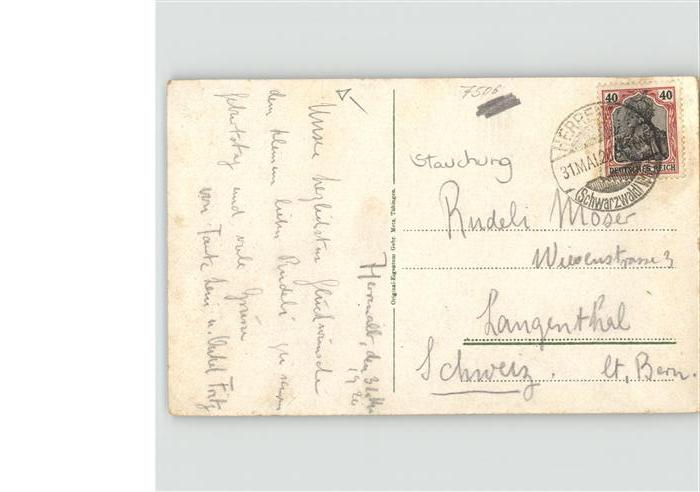 Unsere herzlichsten Glückwünsche
dem kleinen lieben Rudeli zu seinem
Geburtstag und viele Grüsse
von Tante u. Onkel Fritz
Herrenalb, den 31. Mai
1920
Original-Eigentum Gebr. Metz, Tübingen.
7506
40 40
DEUTSCHES REICH
31.MAI.20
(Schwarzwald)
Stauchung
Rudeli Moser
Wiesenstrasse 3
Langenthal
Schweiz. Ct. Bern.